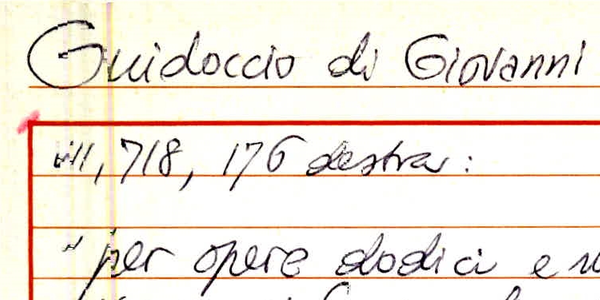 Guidoccio di Giovanni
VIII, 718, 176 destra:
"per opere dodici e